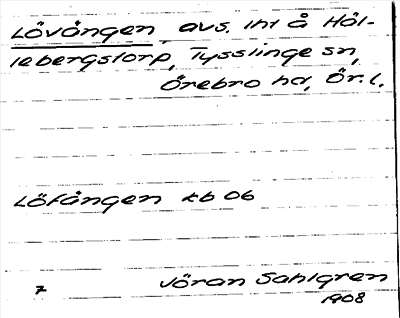 Lövången avs. lht å Höl-
lebergstorp, Tysslinge sn,
Örebro hd, Ör. l.
Löfången kb 06
7
Jöran Sahlgren
1908